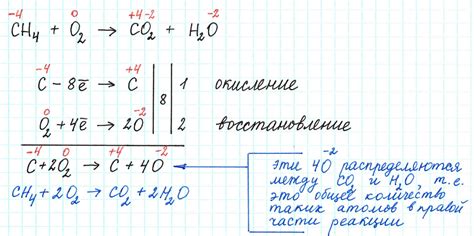 -4 0 +4 -2 -2
CH₄ + O₂ → CO₂ + H₂O
-4 +4
C - 8ē → C | 8 | 1 окисление
0 -2
O₂ + 4ē → 2O | 2 восстановление
-4 0 +4 -2
C + 2O₂ → C + 4O
CH₄ + 2O₂ → CO₂ + 2H₂O
эти 4O⁻² распределяются
между CO₂ и H₂O, т.е.
это общее количество
таких атомов в правой
части реакции